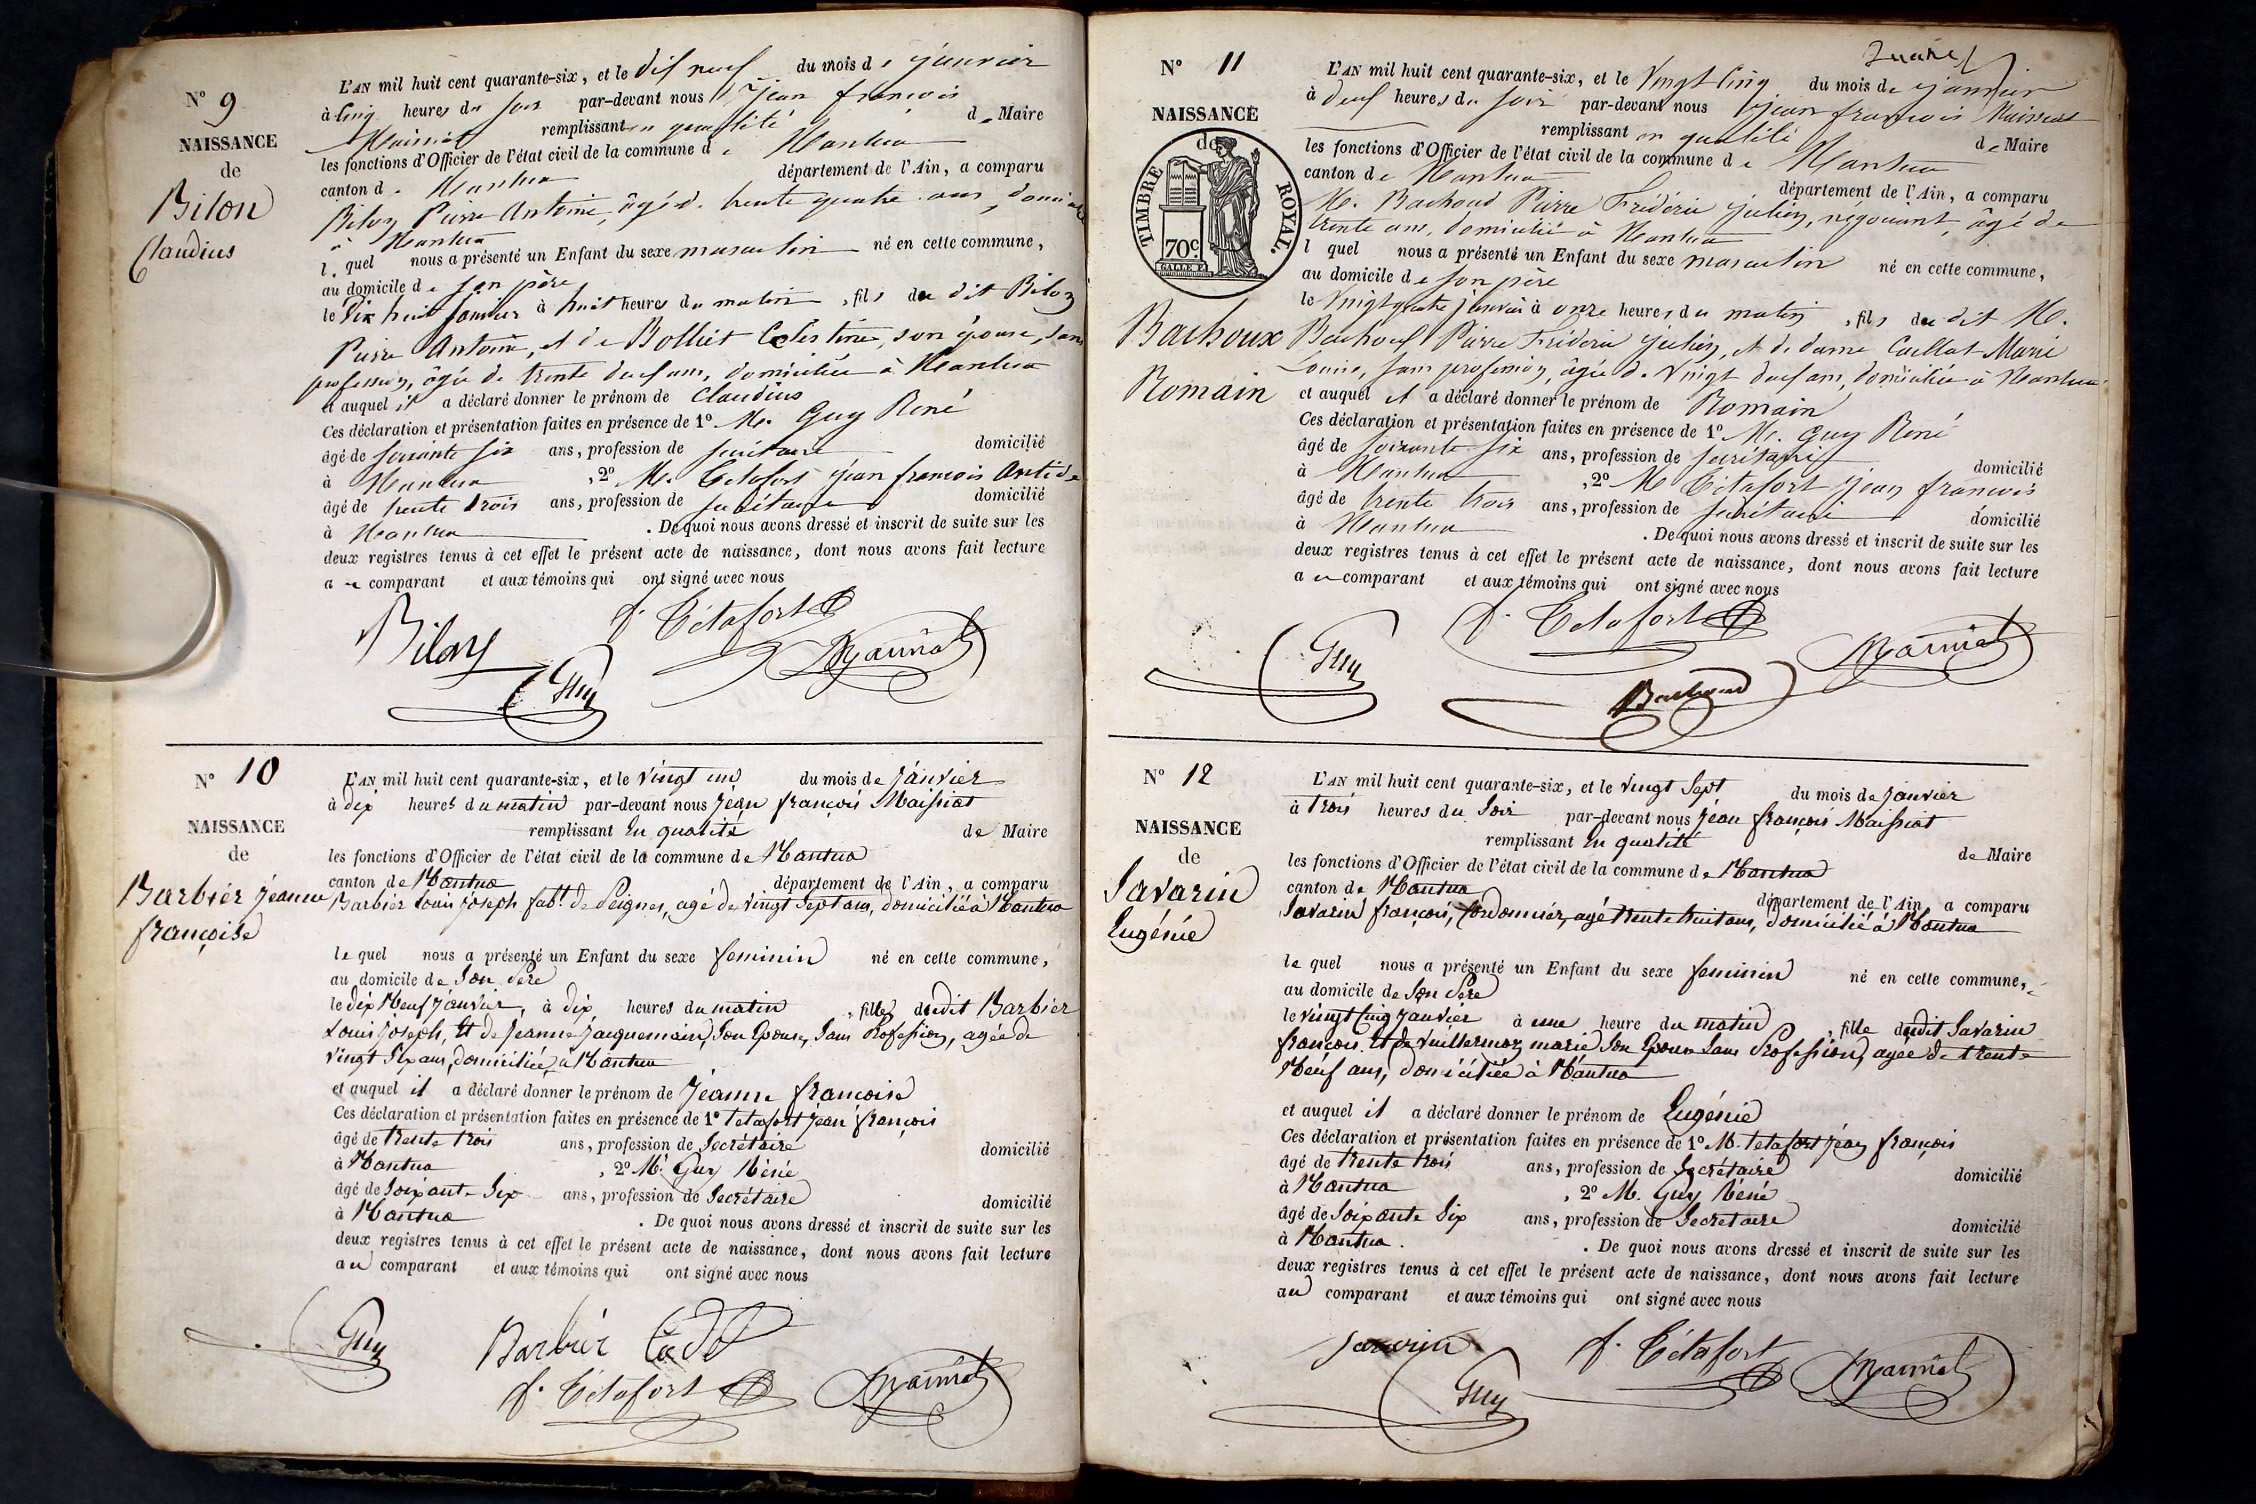 N° 9
NAISSANCE
de
Bilon
Claudius
L'AN mil huit cent quarante-six, et le dix neuf du mois de janvier
à cinq heures du soir par-devant nous Jean françois
Maissiat remplissant en qualité de Maire
les fonctions d'Officier de l'état civil de la commune de Nantua
canton de Nantua département de l'Ain, a comparu
Bilon Pierre Antoine, âgé de trente quatre ans, domicilié
à Nantua
lequel nous a présenté un Enfant du sexe masculin né en cette commune,
au domicile de son père
le Dix huit janvier à huit heures du matin, fils du dit Bilon
Pierre Antoine, et de Bolliet Celestine, son épouse, sans
profession, âgée de trente deux ans, domiciliée à Nantua
et auquel il a déclaré donner le prénom de Claudius
Ces déclaration et présentation faites en présence de 1° M. Guy René
âgé de soixante six ans, profession de secrétaire domicilié
à Nantua, 2° M. Tétafort jean françois Antide
âgé de trente trois ans, profession de secrétaire domicilié
à Nantua. De quoi nous avons dressé et inscrit de suite sur les
deux registres tenus à cet effet le présent acte de naissance, dont nous avons fait lecture
au comparant et aux témoins qui ont signé avec nous
Bilon f. Tétafort
Guy Maissiat
N° 10
NAISSANCE
de
Barbier Jeanne
françoise
L'AN mil huit cent quarante-six, et le vingt un du mois de janvier
à dix heures du matin par-devant nous Jean françois Maissiat
remplissant en qualité de Maire
les fonctions d'Officier de l'état civil de la commune de Nantua
canton de Nantua département de l'Ain, a comparu
Barbier Louis Joseph fabt. de Peignes, agé de vingt sept ans, domicilié à Nantua
le quel nous a présenté un Enfant du sexe feminin né en cette commune,
au domicile de son Père
le dix Neuf janvier, à dix heures du matin, fille dudit Barbier
Louis Joseph, Et de Jeanne Jacquemain, Son Epouse, Sans Profession, agée de
vingt Six ans, domiciliée à Nantua
et auquel il a déclaré donner le prénom de Jeanne françoise
Ces déclaration et présentation faites en présence de 1° Tetafort jean françois
âgé de trente trois ans, profession de Secrétaire domicilié
à Nantua, 2° Mr. Guy Réné
âgé de Soixante Six ans, profession de Secrétaire domicilié
à Nantua. De quoi nous avons dressé et inscrit de suite sur les
deux registres tenus à cet effet le présent acte de naissance, dont nous avons fait lecture
au comparant et aux témoins qui ont signé avec nous
Guy Barbier Cadet
f. Tétafort Maissiat
N° 11
NAISSANCE
de
TIMBRE ROYAL.
70c.
Bachoux
Romain
L'AN mil huit cent quarante-six, et le Vingt cinq du mois de janvier
à deux heures du soir par-devant nous Jean françois Maissiat
remplissant en qualité de Maire
les fonctions d'Officier de l'état civil de la commune de Nantua
canton de Nantua département de l'Ain, a comparu
M. Bachoud Pierre Frédéric julien, négociant, âgé de
trente ans, domicilié à Nantua
l quel nous a présenté un Enfant du sexe masculin né en cette commune,
au domicile de son père
le Vingt quatre janvier à onze heures du matin, fils du dit M.
Bachoud Pierre Frédéric julien, et de dame Caillat Marie
Louise, sans profession, âgée de vingt deux ans, domiciliée à Nantua
et auquel il a déclaré donner le prénom de Romain
Ces déclaration et présentation faites en présence de 1° M. Guy René
âgé de soixante six ans, profession de secrétaire domicilié
à Nantua, 2° M Tétafort jean françois
âgé de trente trois ans, profession de secrétaire domicilié
à Nantua. De quoi nous avons dressé et inscrit de suite sur les
deux registres tenus à cet effet le présent acte de naissance, dont nous avons fait lecture
au comparant et aux témoins qui ont signé avec nous
Guy f. Tétafort Maissiat
Bachoud
N° 12
NAISSANCE
de
Savarin
Eugénie
L'AN mil huit cent quarante-six, et le vingt Sept du mois de janvier
à trois heures du Soir par-devant nous Jean françois Maissiat
remplissant en qualité de Maire
les fonctions d'Officier de l'état civil de la commune de Nantua
canton de Nantua département de l'Ain, a comparu
Savarin françois, Cordonnier, agé trente huit ans, domicilié à Nantua
le quel nous a présenté un Enfant du sexe feminin né en cette commune,
au domicile de Son Père
le vingt Cinq janvier à une heure du matin, fille dudit Savarin
françois Et de Vuillermoz marie Son Epouse Sans Profession, agée de trente
Neuf ans, domiciliée à Nantua
et auquel il a déclaré donner le prénom de Eugénie
Ces déclaration et présentation faites en présence de 1° M. Tetafort Jean françois
âgé de trente trois ans, profession de Secrétaire domicilié
à Nantua, 2° M. Guy Réné
âgé de Soixante Six ans, profession de Secretaire domicilié
à Nantua. De quoi nous avons dressé et inscrit de suite sur les
deux registres tenus à cet effet le présent acte de naissance, dont nous avons fait lecture
au comparant et aux témoins qui ont signé avec nous
Savarin f. Tétafort
Guy Maissiat